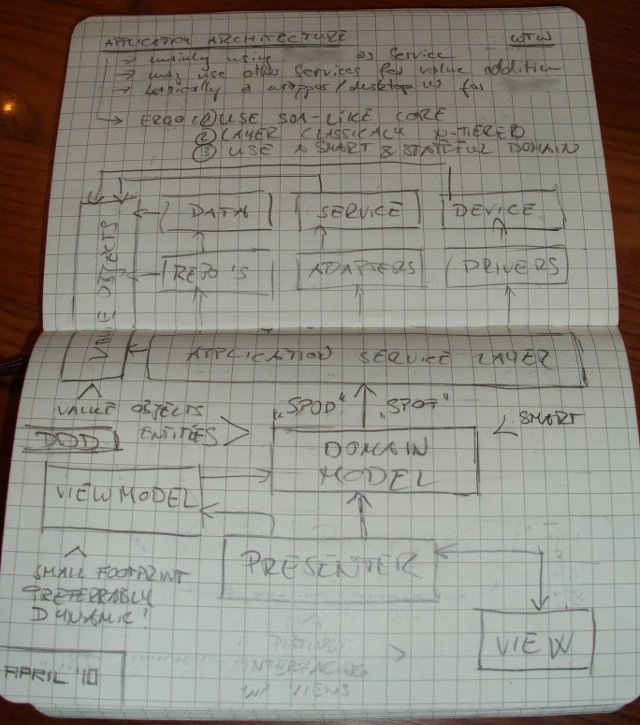 APPLICATION ARCHITECTURE WTCN
→ mainly using as Service
→ may use other Services for value addition
→ basically a wrapper/desktop UI for
→ ERGO: ① USE SOA-LIKE CORE
② LAYER CLASSICALLY N-TIERED
③ USE A SMART & STATEFUL DOMAIN
DATA SERVICE DEVICE
VALUE OBJECTS
REPO'S ADAPTERS DRIVERS
APPLICATION SERVICE LAYER
VALUE OBJECTS
ENTITIES
"SPOD" "SPOT"
SMART
DDD
DOMAIN
MODEL
VIEWMODEL
PRESENTER
SMALL FOOTPRINT
PREFERRABLY
DYNAMIC!
VIEW
INTERFACING
W/ VIEWS
APRIL '10